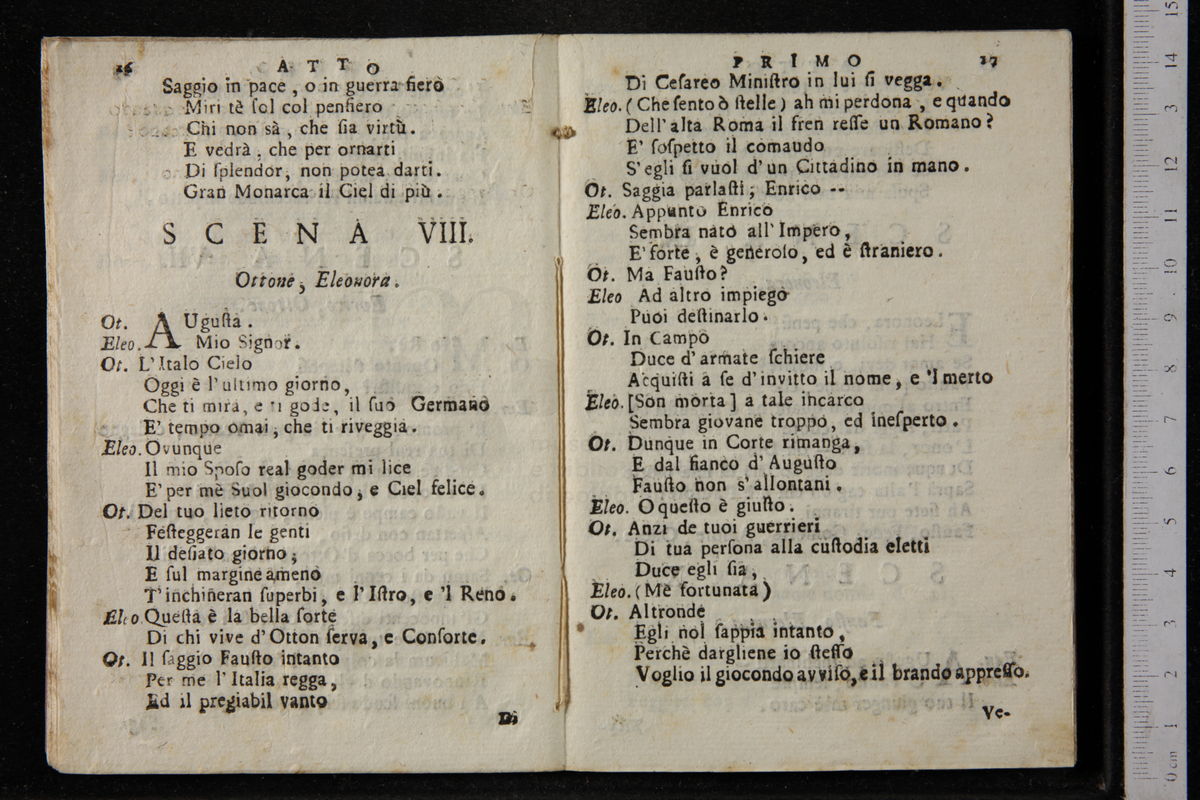 26 ATTO
Saggio in pace , o in guerra fierò
Miri tè ſol col penſiero
Chi non sà , che ſia virtù .
E vedrà , che per ornarti
Di ſplendor, non potea darti.
Gran Monarca il Ciel di più .
SCENA VIII.
Ottone, Eleonora.
Ot. AUguſta .
Eleo. Mio Signor.
Ot. L'Italo Cielo
Oggi è l'ultimo giorno,
Che ti mira, e ti gode, il ſuo Germano
E' tempo omai, che ti riveggia.
Eleo. Ovunque
Il mio Spoſo real goder mi lice
E' per mè Suol giocondo, e Ciel felice.
Ot. Del tuo lieto ritorno
Feſteggeran le genti
Il deſiato giorno;
E ſul margine amenò
T'inchineran ſuperbi, e l'Iſtro, e 'l Reno.
Eleo Queſta è la bella ſorte
Di chi vive d'Otton ſerva, e Conſorte.
Ot. Il ſaggio Fauſto intanto
Per me l'Italia regga,
Ed il pregiabil vanto
Di
PRIMO 27
Di Ceſareo Miniſtro in lui ſi vegga.
Eleo. ( Che ſento ò ſtelle ) ah mi perdona , e quando
Dell'alta Roma il fren reſſe un Romano?
E' ſoſpetto il comaudo
S'egli ſi vuol d'un Cittadino in mano .
Ot. Saggia parlaſti; Enrico --
Eleo. Appunto Enrico
Sembra nato all'Impero,
E' forte, è generoſo, ed è ſtraniero.
Ot. Ma Fauſto?
Eleo Ad altro impiego
Puoi deſtinarlo.
Ot. In Campo
Duce d'armate ſchiere
Acquiſti a ſe d'invitto il nome, e 'l merto
Eleo. [Son morta] a tale incarco
Sembra giovane troppo, ed ineſperto .
Ot. Dunque in Corte rimanga,
E dal fianco d'Auguſto
Fauſto non s'allontani.
Eleo. O queſto è giuſto.
Ot. Anzi de tuoi guerrieri
Di tua perſona alla cuſtodia eletti
Duce egli ſia,
Eleo. (Me fortunata)
Ot. Altronde
Egli nol ſappia intanto,
Perchè dargliene io ſteſſo
Voglio il giocondo avviſo, e il brando appreſſo.
Ve-